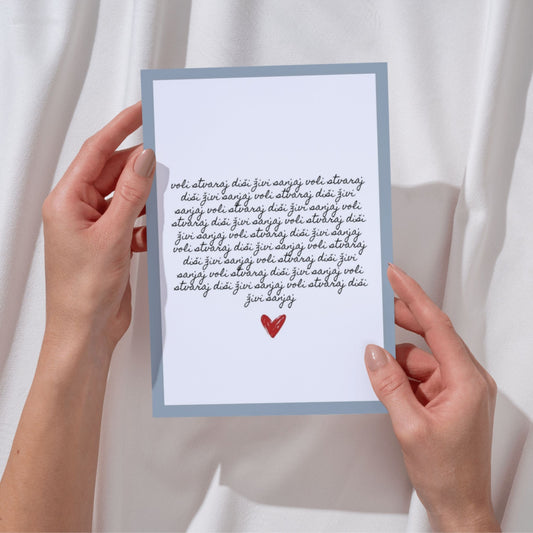 voli stvaraj diši živi sanjaj voli stvaraj
diši živi sanjaj voli stvaraj diši živi
sanjaj voli stvaraj diši živi sanjaj voli
stvaraj diši živi sanjaj voli stvaraj diši
živi sanjaj voli stvaraj diši živi sanjaj
voli stvaraj diši živi sanjaj voli stvaraj
diši živi sanjaj voli stvaraj diši živi
sanjaj voli stvaraj diši živi sanjaj voli
stvaraj diši živi sanjaj voli stvaraj diši
živi sanjaj